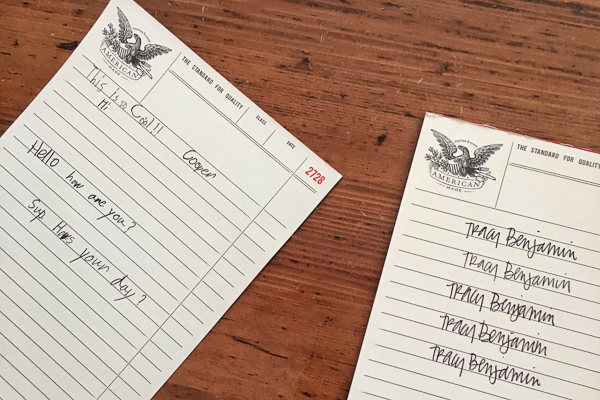 AMERICAN
MADE
THE STANDARD FOR QUALITY
CLASS
DATE
2728
This is so Cool!!
Hi
Cooper
Hello how are you?
Sup Hows your day?
AMERICAN
MADE
THE STANDARD FOR QUALITY
Tracy Benjamin
Tracy Benjamin
Tracy Benjamin
Tracy Benjamin
Tracy Benjamin